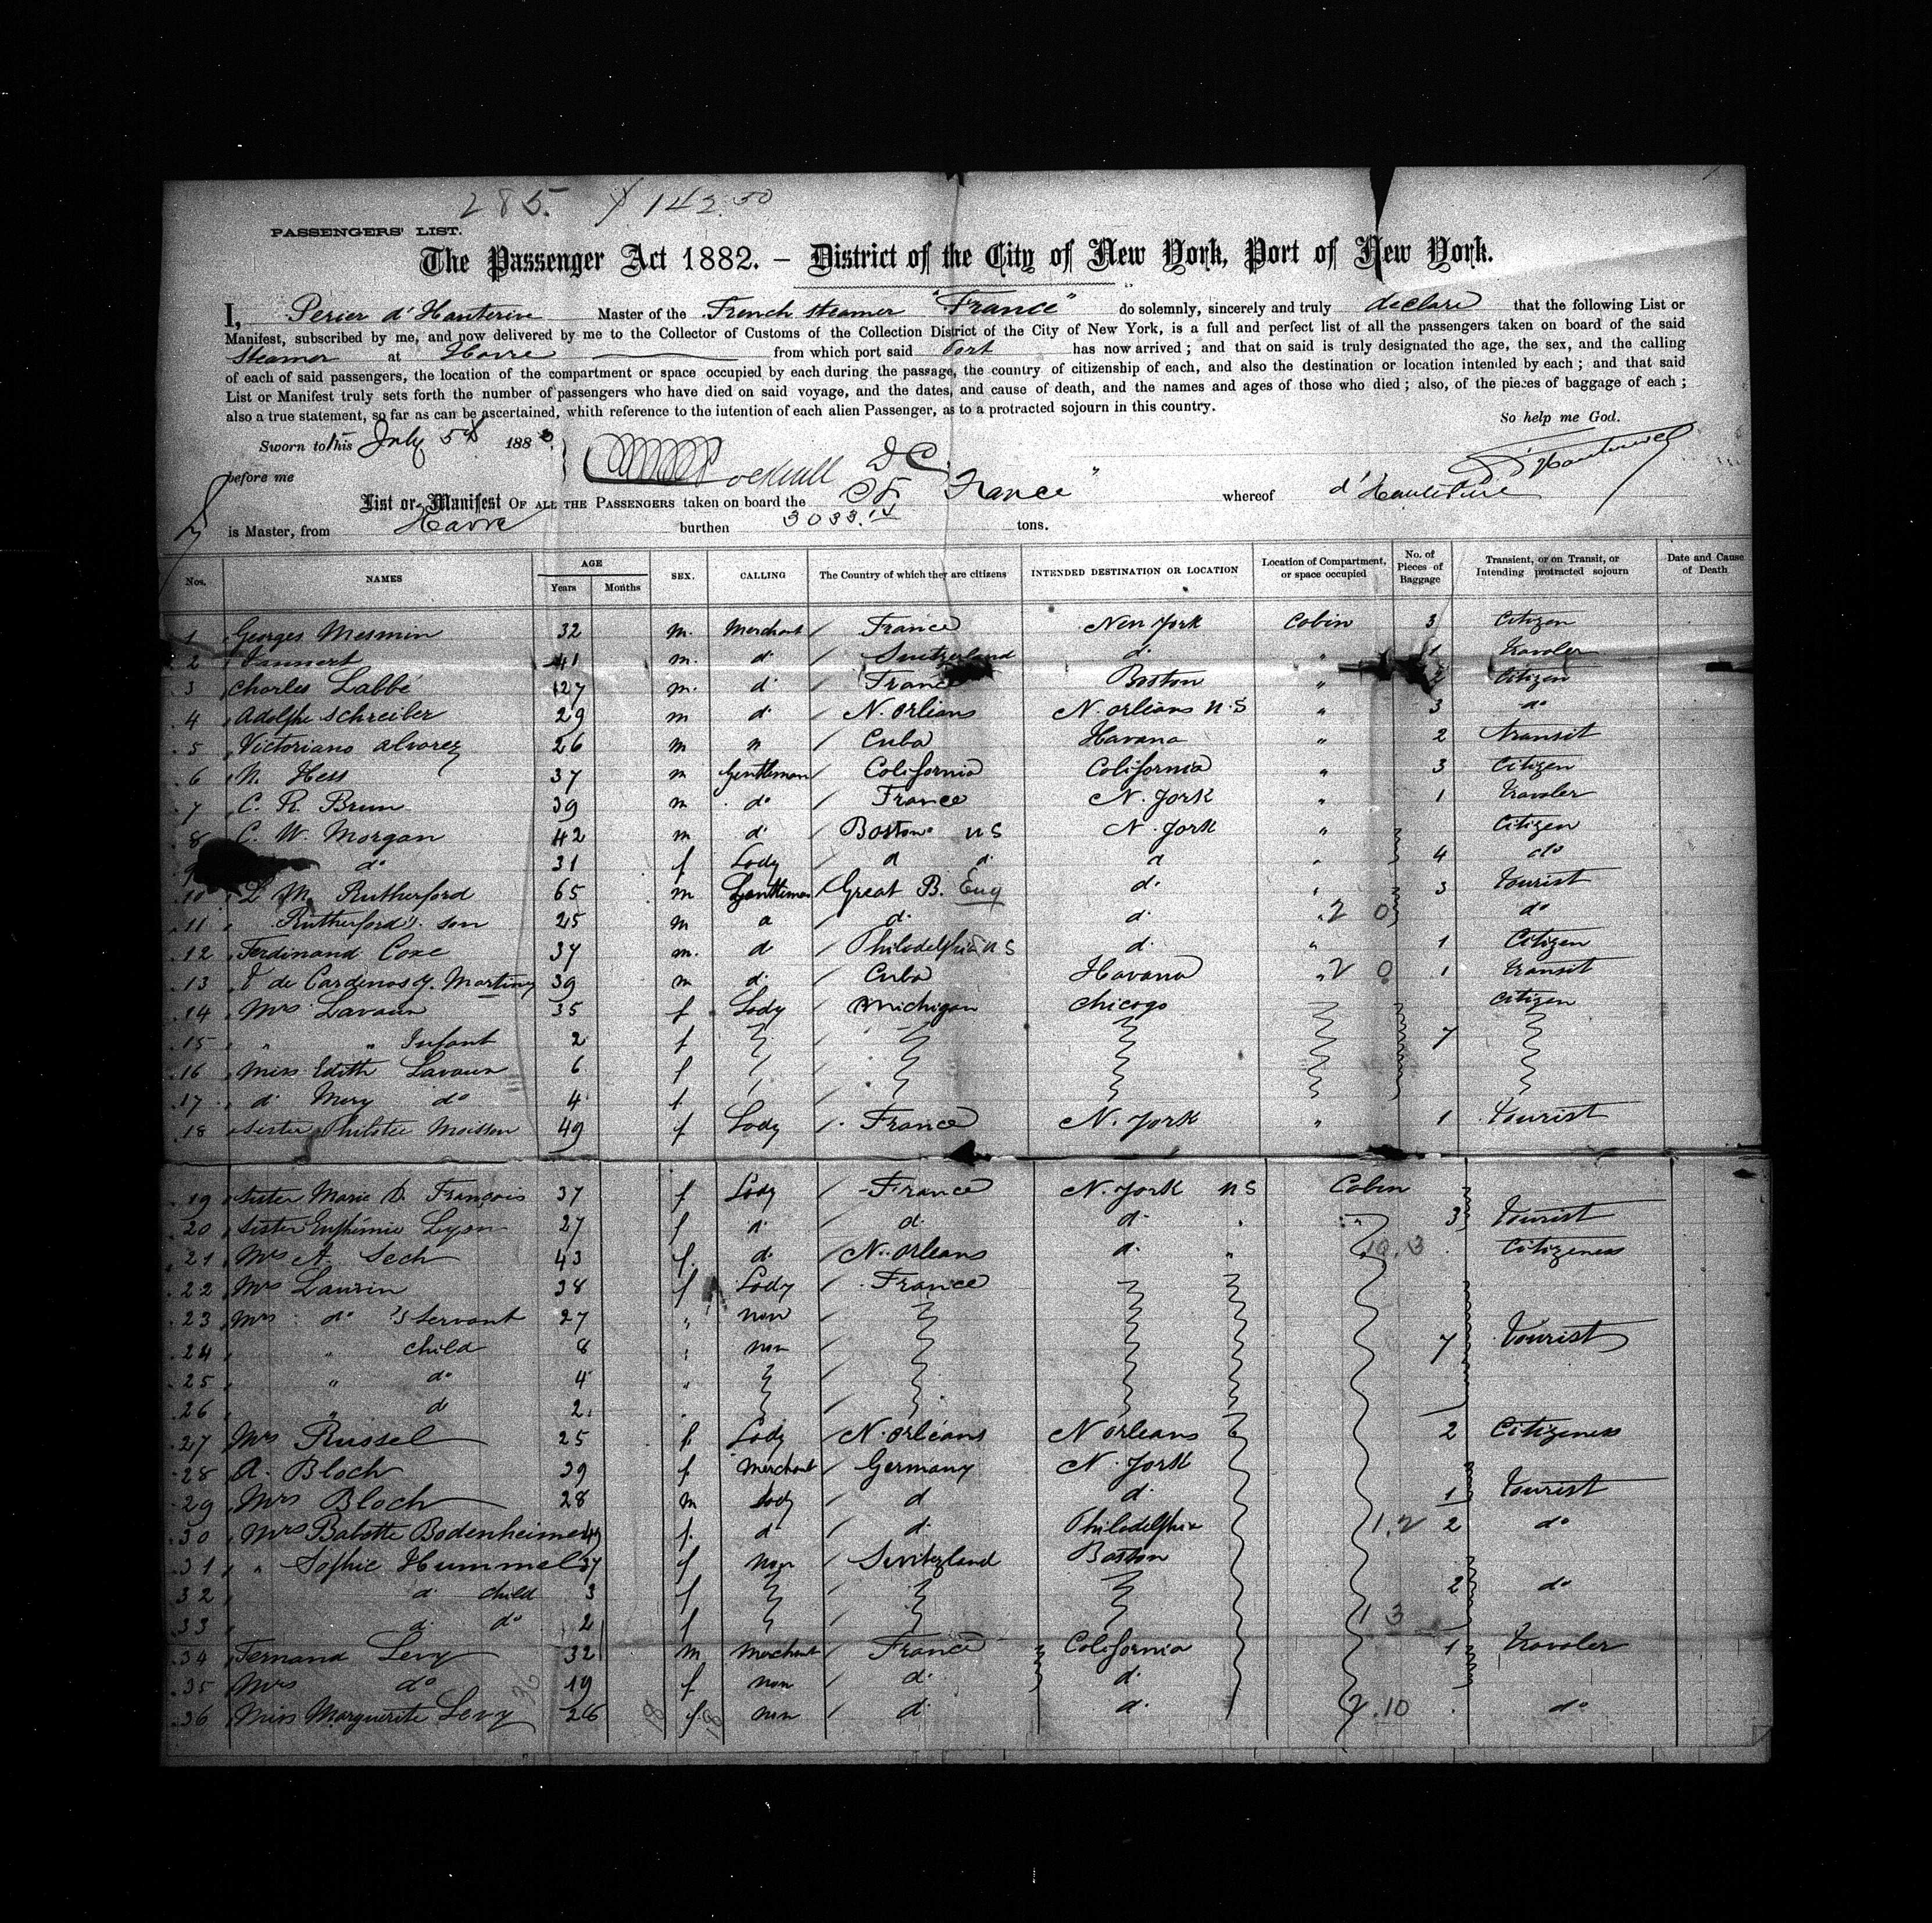 285. $142.50
PASSENGERS' LIST.
The Passenger Act 1882. – District of the City of New York, Port of New York.
I, Perier d'Hauterive Master of the French steamer "France" do solemnly, sincerely and truly declare that the following List or
Manifest, subscribed by me, and now delivered by me to the Collector of Customs of the Collection District of the City of New York, is a full and perfect list of all the passengers taken on board of the said
Steamer at Havre from which port said Port has now arrived ; and that on said is truly designated the age, the sex, and the calling
of each of said passengers, the location of the compartment or space occupied by each during the passage, the country of citizenship of each, and also the destination or location intended by each ; and that said
List or Manifest truly sets forth the number of passengers who have died on said voyage, and the dates, and cause of death, and the names and ages of those who died ; also, of the pieces of baggage of each ;
also a true statement, so far as can be ascertained, whith reference to the intention of each alien Passenger, as to a protracted sojourn in this country.
So help me God.
Sworn to this July 5th 1883
before me DC
List or Manifest OF ALL THE PASSENGERS taken on board the France " whereof d'Hauterive
is Master, from Havre burthen 3033.14 tons.
Nos. NAMES AGE Years Months SEX. CALLING The Country of which they are citizens INTENDED DESTINATION OR LOCATION Location of Compartment, or space occupied No. of Pieces of Baggage Transient, or on Transit, or Intending protracted sojourn Date and Cause of Death
1 Georges Mesmin 32 m. Merchant France New York Cabin 3 Citizen
2 Vannert 41 m. do Switzerland do " 1 traveler
3 Charles Labbé 27 m. do France Boston " 2 Citizen
4 Adolphe Schreiber 29 m do N. Orlians N. Orleans U.S " 3 do
5 Victoriano Alvarez 26 m " Cuba Havana " 2 transit
6 N. Hess 37 m Gentleman California California " 3 Citizen
7 C. R. Brun 39 m do France N. York " 1 traveler
8 C. W. Morgan 42 m do Boston US N. York " Citizen
9 do 31 f Lady d d. d " 4 do
10 L M. Rutherford 65 m Gentleman Great B. Eng d. " 3 tourist
11 Rutherford's son 25 m d d. d. " 2 0 do
12 Ferdinand Coxe 37 m. d Philadelphia US d. " 1 Citizen
13 de Cardenas y. Martiny 39 m d. Cuba Havana " 2 0 1 transit
14 Mrs Lavaun 35 f Lady Michigan Chicago Citizen
15 " " Infant 2 f 7
16 Miss Edith Lavaun 6 f
17 d. Mery do 4 f
18 Sister Philotée Moisson 49 f Lady France N. York " 1 tourist
19 Sister Marie D. François 37 f Lady France N. York US Cabin
20 Sister Euphémie Lyon 27 f d. d. d. " " 3 tourist
21 Mrs A. Sech 43 f. d. N. Orleans d. " 10.3 Citizeness
22 Mrs Laurin 38 f Lady France
23 Mrs do 's Servant 27 " non
24 " child 8 " non 7 tourist
25 " do 4 "
26 " do 2 "
27 Mrs Russel 25 f. Lady N. Orléans N Orleans 2 Citizeness
28 A. Bloch 39 f Merchant Germany N. York
29 Mrs Bloch 28 m Lady d d. 1 tourist
30 Mrs Babette Bodenheimer 49 f. d. d. Philadelphia 1.2 2 do
31 " Sophie Hummel 37 f non Switzland Boston
32 d. child 3 f 2 do
33 d. do 2 f 1 3
34 Fernand Levy 32 m Merchant France California 1 traveler
35 Mrs do 19 f non d. d.
36 Miss Marguerite Levy 26 f. non d. d. 2.10 do